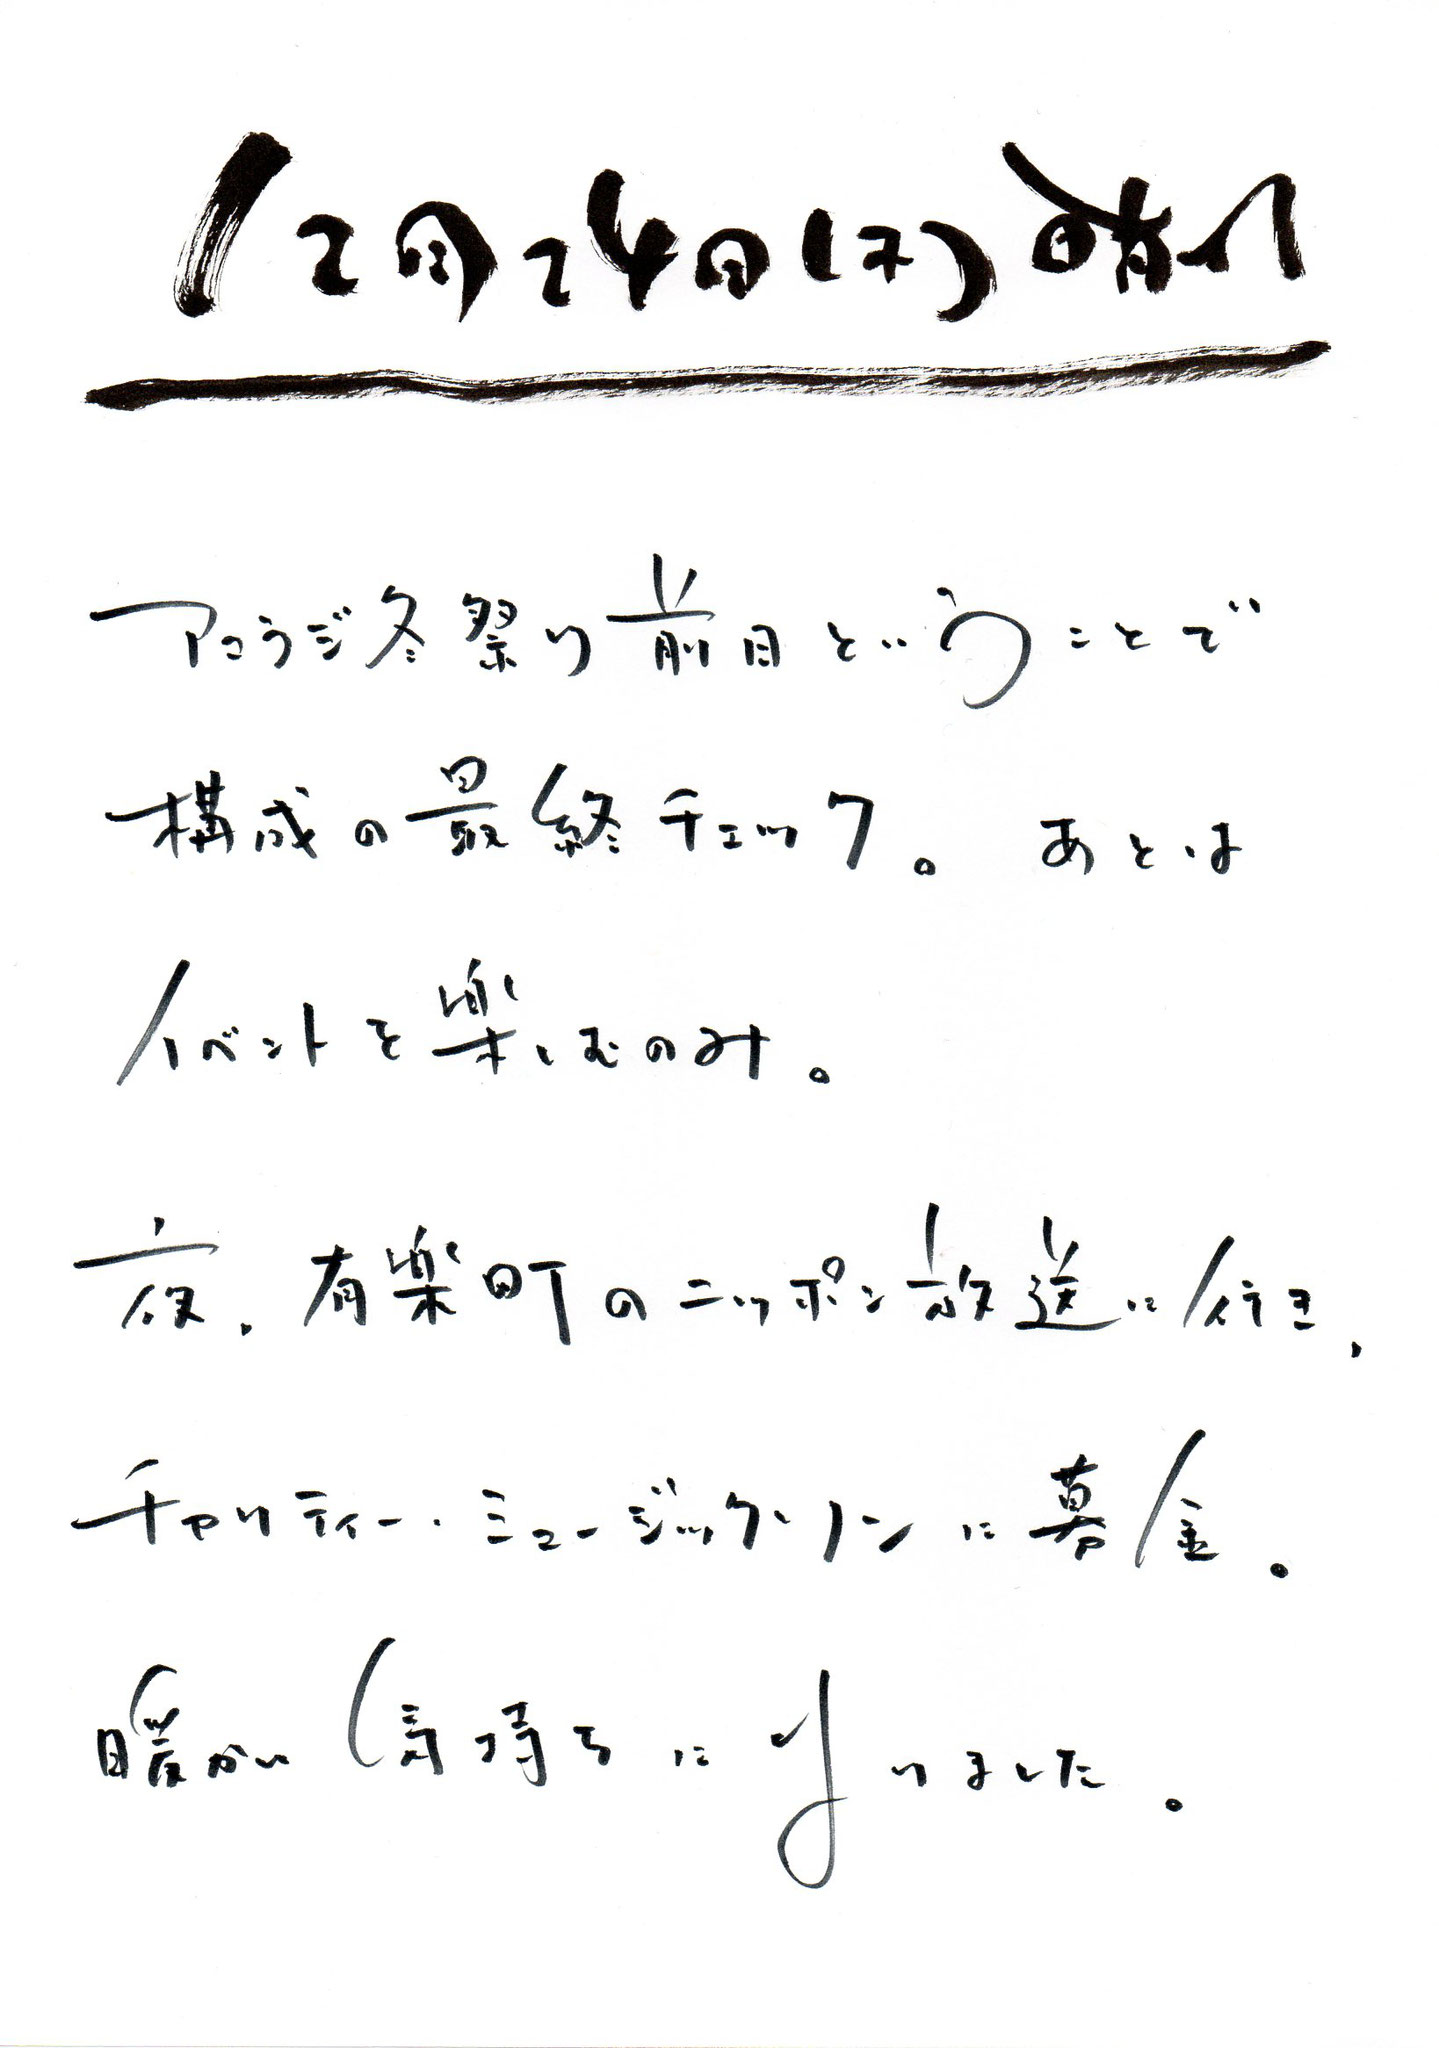 12月24日(木)晴れ
アコラジ冬祭り前日ということで
構成の最終チェック。 あとは
イベントを楽しむのみ。
夜、有楽町のニッポン放送に行き、
チャリティー・ミュージックソンに募金。
暖かい気持ちになりました。